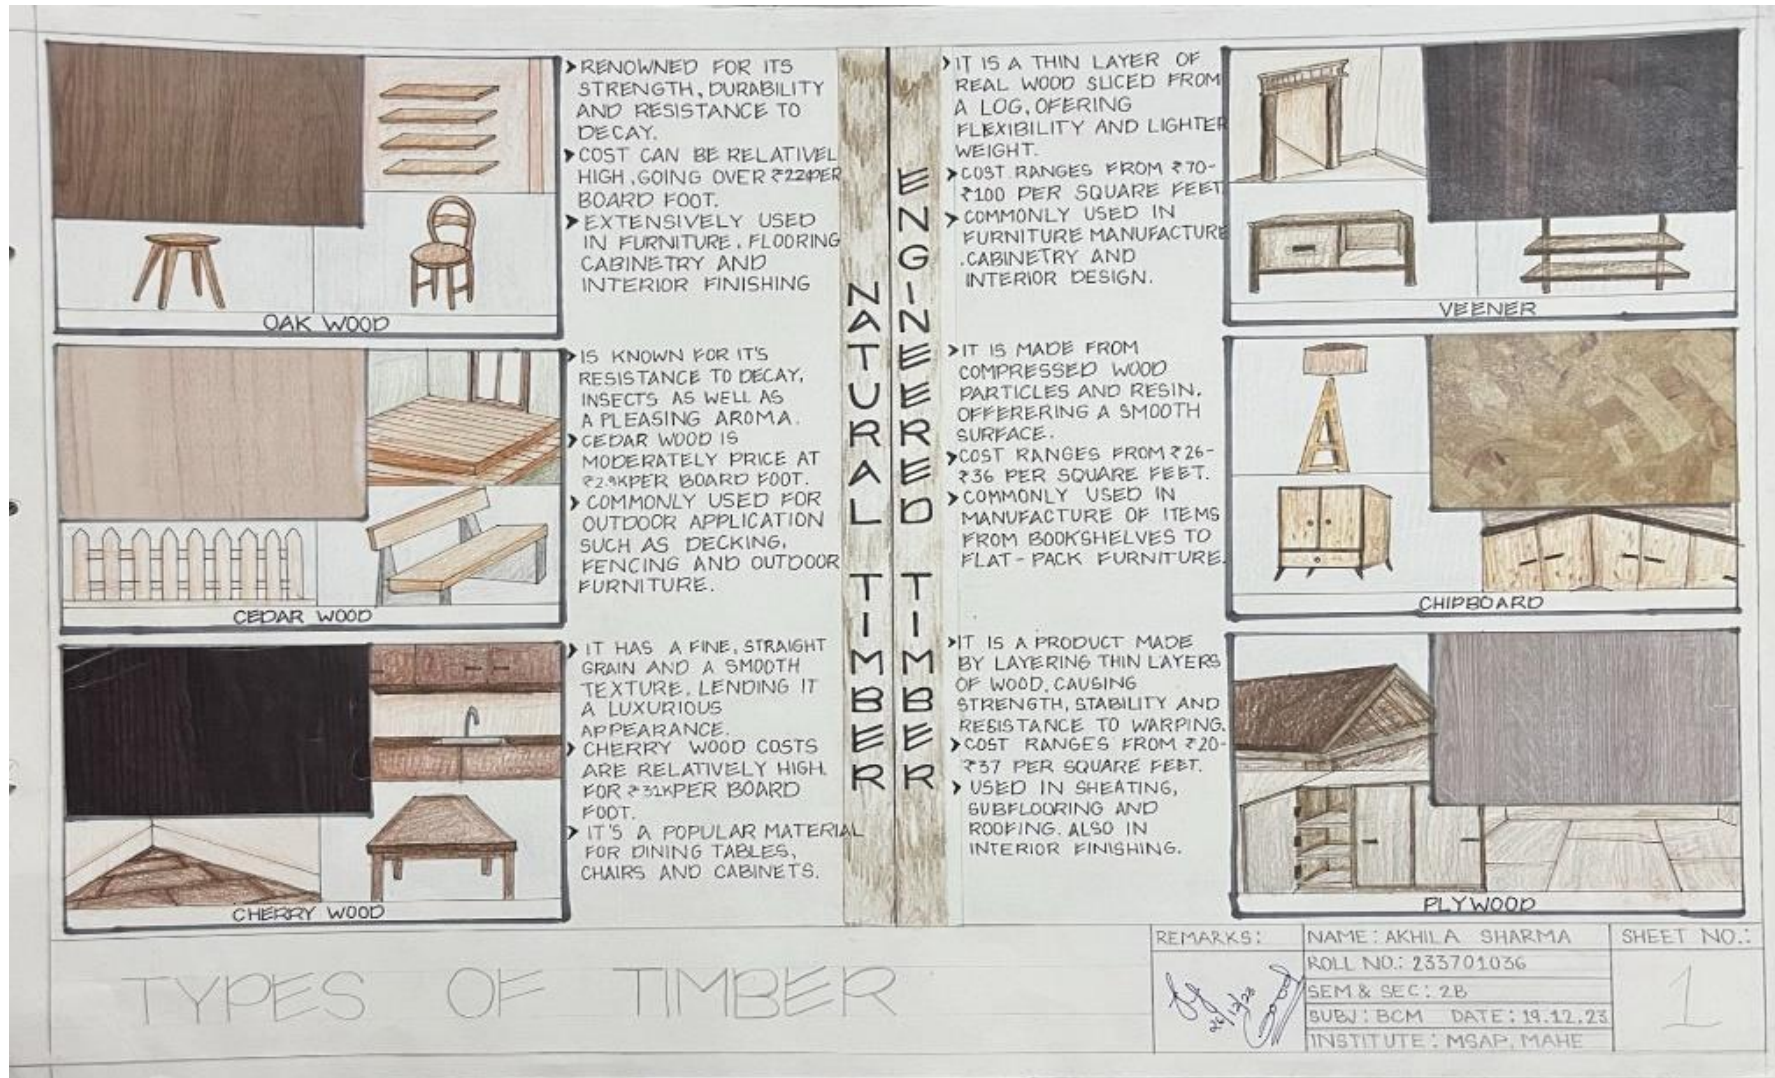 RENOWNED FOR ITS
STRENGTH, DURABILITY
AND RESISTANCE TO
DECAY.
COST CAN BE RELATIVEL
HIGH, GOING OVER PER
BOARD FOOT.
EXTENSIVELY USED
IN FURNITURE, FLOORING
CABINETRY AND
INTERIOR FINISHING
OAK WOOD
IS KNOWN FOR IT'S
RESISTANCE TO DECAY,
INSECTS AS WELL AS
A PLEASING AROMA.
CEDAR WOOD IS
MODERATELY PRICE AT
₹2.9KPER BOARD FOOT.
COMMONLY USED FOR
OUTDOOR APPLICATION
SUCH AS DECKING,
FENCING AND OUTDOOR
FURNITURE.
CEDAR WOOD
IT HAS A FINE, STRAIGHT
GRAIN AND A SMOOTH
TEXTURE, LENDING IT
A LUXURIOUS
APPEARANCE.
CHERRY WOOD COSTS
ARE RELATIVELY HIGH.
FOR ₹31KPER BOARD
FOOT.
IT'S A POPULAR MATERIAL
FOR DINING TABLES,
CHAIRS AND CABINETS.
CHERRY WOOD
NATURAL TIMBER
ENGINEERED TIMBER
IT IS A THIN LAYER OF
REAL WOOD SLICED FROM
A LOG, OFERING
FLEXIBILITY AND LIGHTER
WEIGHT.
COST RANGES FROM ₹70-
₹100 PER SQUARE FEET
COMMONLY USED IN
FURNITURE MANUFACTURE
,CABINETRY AND
INTERIOR DESIGN.
VEENER
IT IS MADE FROM
COMPRESSED WOOD
PARTICLES AND RESIN,
OFFERERING A SMOOTH
SURFACE.
COST RANGES FROM ₹26-
₹36 PER SQUARE FEET.
COMMONLY USED IN
MANUFACTURE OF ITEMS
FROM BOOKSHELVES TO
FLAT-PACK FURNITURE.
CHIPBOARD
IT IS A PRODUCT MADE
BY LAYERING THIN LAYERS
OF WOOD, CAUSING
STRENGTH, STABILITY AND
RESISTANCE TO WARPING.
COST RANGES FROM ₹20-
₹37 PER SQUARE FEET.
USED IN SHEATING,
SUBFLOORING AND
ROOFING. ALSO IN
INTERIOR FINISHING.
PLYWOOD
TYPES OF TIMBER
REMARKS:
26/12/23
NAME: AKHILA SHARMA
ROLL NO.: 233701036
SEM & SEC: 2B
SUBJ: BCM DATE: 19.12.23
INSTITUTE: MSAP, MAHE
SHEET NO.:
1